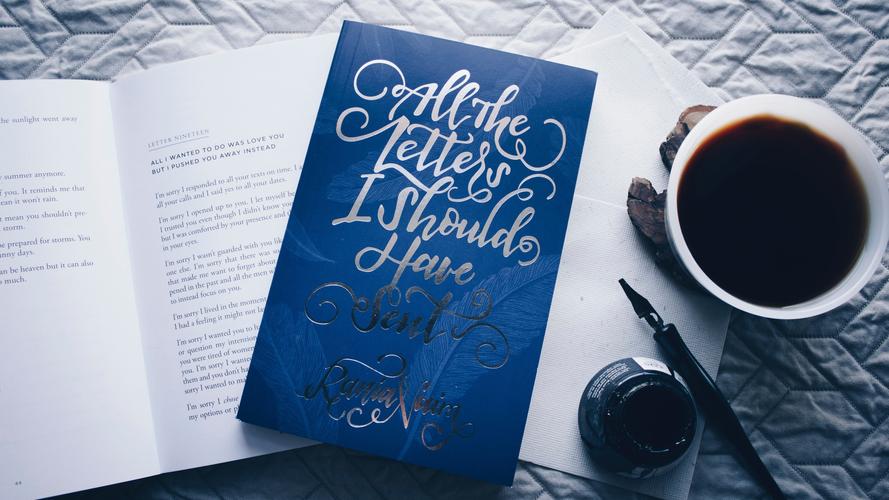 he sunlight went away
summer anymore.
f you. It reminds me that
ean it won't rain.
t mean you shouldn't pre-
storm.
be prepared for storms. You
nny days.
an be heaven but it can also
o much.
44
LETTER NINETEEN
ALL I WANTED TO DO WAS LOVE YOU
BUT I PUSHED YOU AWAY INSTEAD
I'm sorry I responded to all your texts on time. I a
all your calls and I said yes to all your dates.
I'm sorry I opened up to you. I let myself be
I trusted you even though I didn't know you
but I was comforted by your presence and t
in your eyes.
I'm sorry I wasn't guarded with you lik
one else. I'm sorry that there was so
that made me want to forget about
pened in the past and all the men w
to instead focus on you.
I'm sorry I lived in the moment
I had a feeling it might not la
I'm sorry I wanted you to h
or question my intention
you were tired of women
you. I'm sorry I wante
them and you don't ha
sorry I wanted to ma
I'm sorry I chose
my options or p
All the
Letters
I Should
Have
Sent
Rania Naim